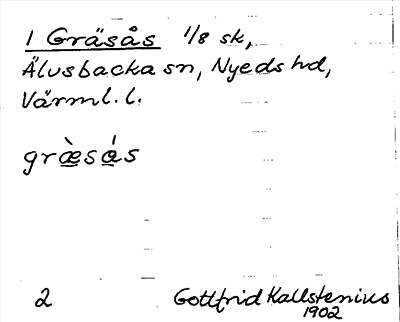 1 Gräsås 1/8 sk,
Älvsbacka sn, Nyeds hd,
Värml. l.
græ̀sås
2 Gottfrid Kallstenius
1902